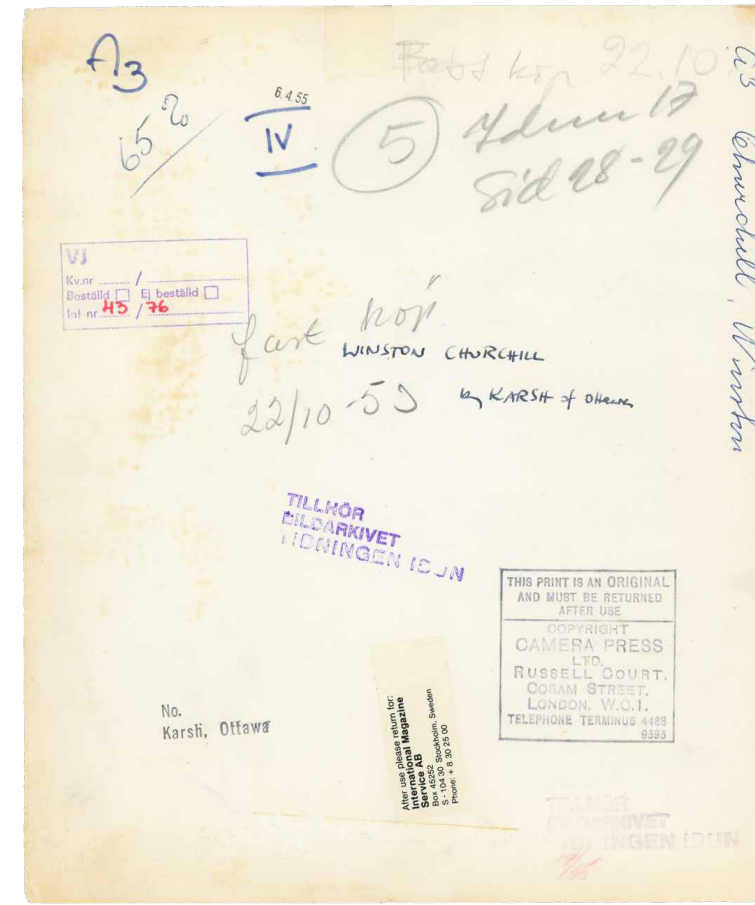 A3
köp 22.10
65%
6.4.55
IV
5
Idun 17
Sid 28-29
VJ
Kv.nr / 
Beställd Ej beställd
Int nr 43 / 76
fast köp
22/10 -53
WINSTON CHURCHILL
by KARSH of Ottawa
Churchill, Winston
TILLHÖR
BILDARKIVET
TIDNINGEN IDUN
THIS PRINT IS AN ORIGINAL
AND MUST BE RETURNED
AFTER USE
COPYRIGHT
CAMERA PRESS
LTD.
RUSSELL COURT.
CORAM STREET.
LONDON. W.C.1.
TELEPHONE TERMINUS 4488
9393
No.
Karsh, Ottawa
After use please return for:
International Magazine
Service AB
Box 45252
S - 104 30 Stockholm, Sweden
Phone: + 8 30 25 00
TILLHÖR
BILDARKIVET
TIDNINGEN IDUN